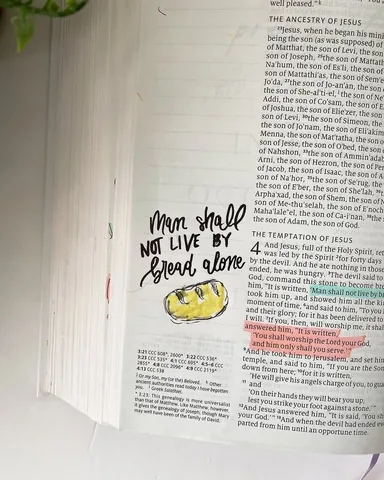 well pleased."
THE ANCESTRY OF JESUS
Jesus, when he began his mini
being the son (as was supposed) of
of Matthat, the son of Levi, the son
son of Joseph, the son of Mattath
Na'hum, the son of Es'li, the son of
of Mattathi'as, the son of Sem'e
Jo'da, the son of Jo-an'an, the son
the son of She-al'ti-el, the son of Ne
Addi, the son of Co'sam, the son of E
of Joshua, the son of Elie'zer, the son
son of Levi, the son of Simeon, the
the son of Jo'nam, the son of Eli'akim
Menna, the son of Mat'tatha, the son
of Jesse, the son of O'bed, the son of
of Nahshon, the son of Ammin'adab
Arni, the son of Hezron, the son of Per
of Jacob, the son of Isaac, the son of A
of Na'hor, the son of Se'rug, the
the son of E'ber, the son of She'lah,
Arpha'xad, the son of Shem, the son of N
of Me-thu'selah, the son of E'noch
Maha'lale'el, the son of Ca-i'nan, the
the son of Adam, the son of God.
THE TEMPTATION OF JESUS
4 And Jesus, full of the Holy Spirit, ret
was led by the Spirit for forty days
by the devil. And he ate nothing in those
ended, he was hungry. The devil said to
God, command this stone to become bre
him, "It is written, 'Man shall not live by b
took him up, and showed him all the ki
moment of time, and said to him, "To you
and their glory; for it has been delivered to
I will. If you, then, will worship me, it sha
answered him, "It is written,
'You shall worship the Lord your God,
and him only shall you serve.'"
And he took him to Jerusalem, and set him
temple, and said to him, "If you are the Son
down from here; for it is written,
'He will give his angels charge of you, to gua
and
'On their hands they will bear you up,
lest you strike your foot against a stone.'"
And Jesus answered him, "It is said, 'You sh
your God.'" And when the devil had ended ev
parted from him until an opportune time.
Man shall
NOT LIVE BY
bread alone
3:21 CCC 608, 2600 3:22 CCC 536
3:23 CCC 535 4:1 CCC 695 4:5-6 CCC
2119 4:8 CCC 2096 4:9 CCC 2119
4:13 CCC 538
Or my Son, my (or the) Beloved. Other
ancient authorities read today I have begotten
you. Greek Salathiel.
3:23: This genealogy is more universalist
than that of Matthew. Like Matthew, however,
it gives the genealogy of Joseph, though Mary
may well have been of the family of David.